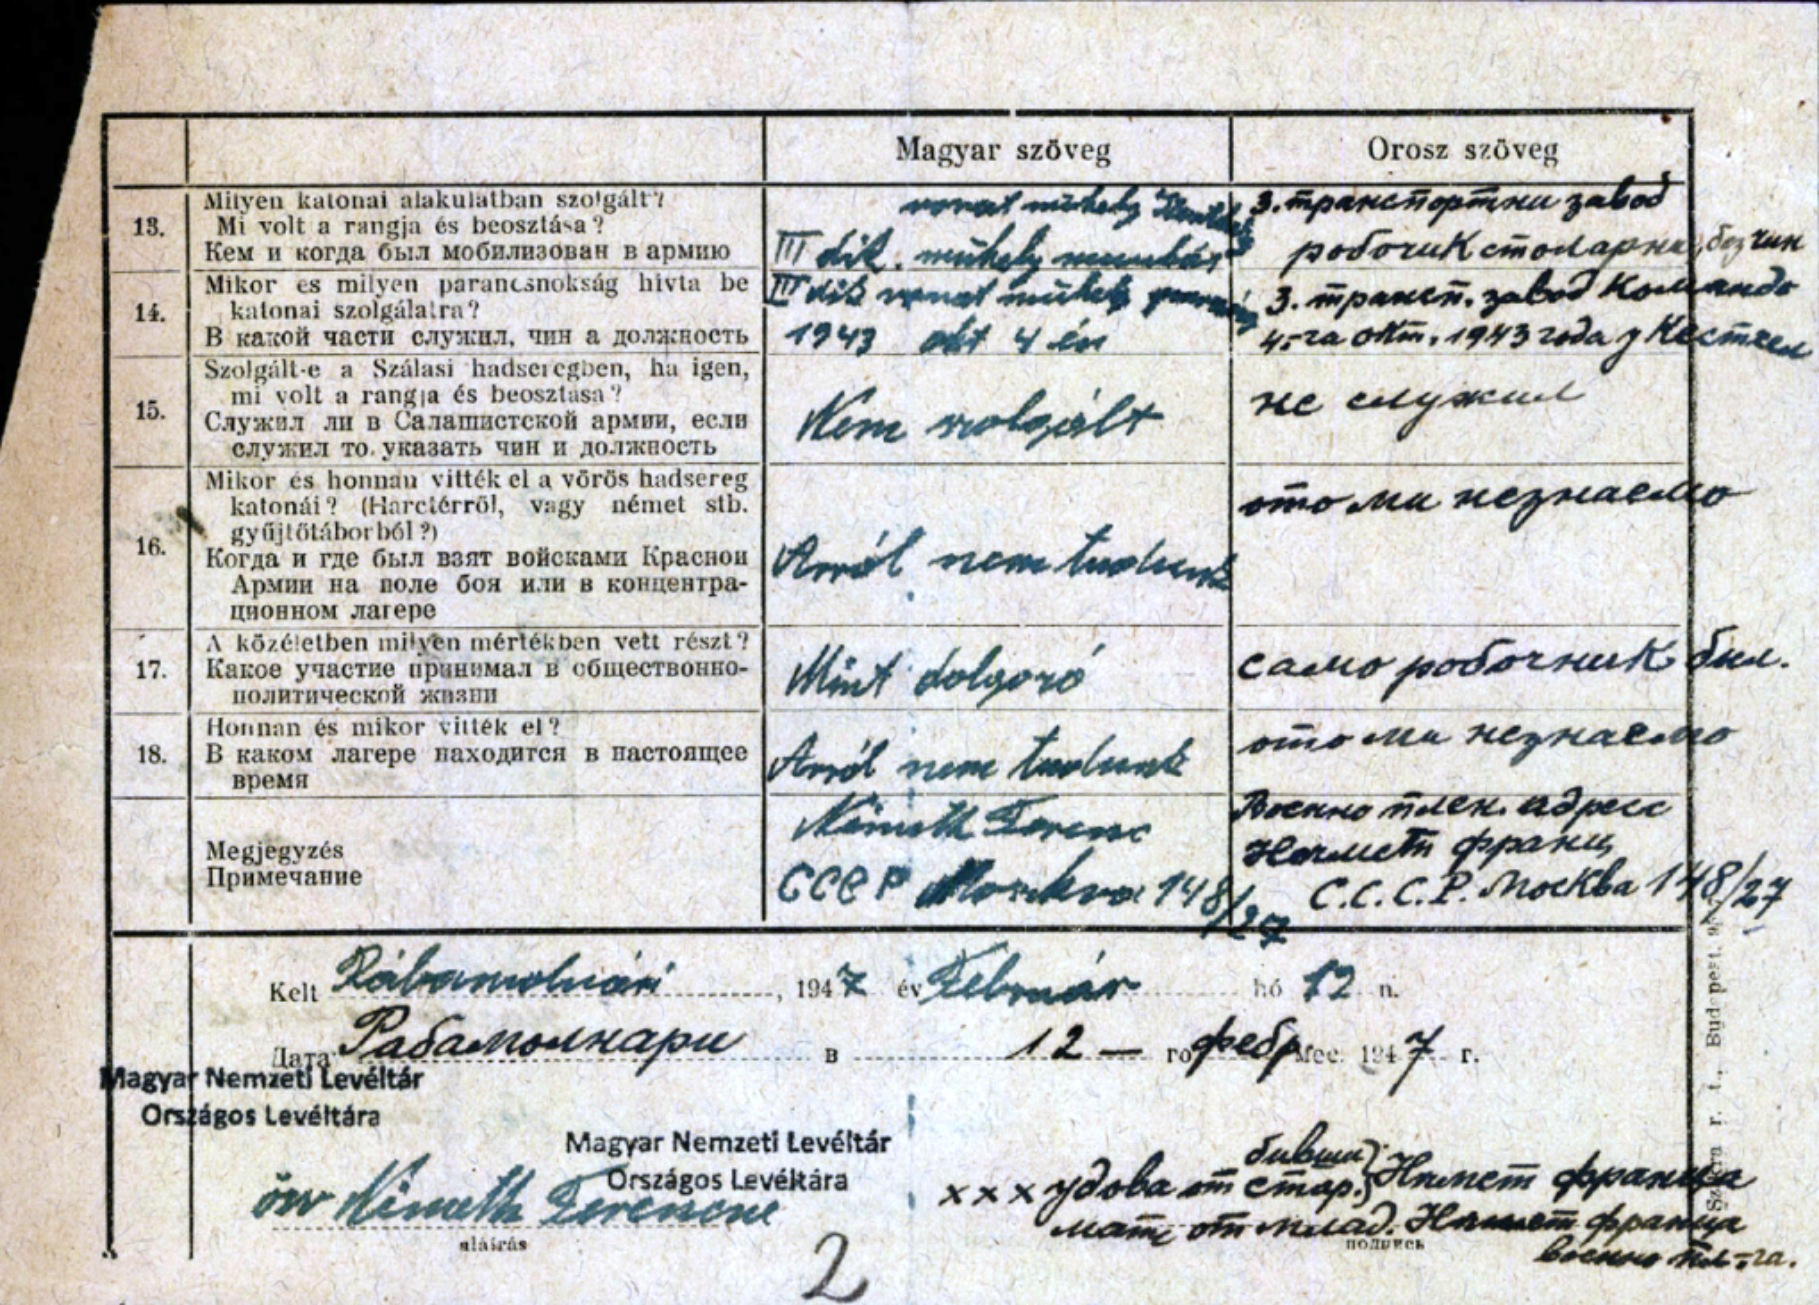 Magyar szöveg
Orosz szöveg
13.
Milyen katonai alakulatban szolgált?
Mi volt a rangja és beosztása?
Кем и когда был мобилизован в армию
vonat műhely
III dik. műhely munkás
3. транспортни завод
робочик столарна, без чин
14.
Mikor és milyen parancsnokság hívta be
katonai szolgálatra?
В какой части служил, чин а должность
III dik vonat műhely
1943 okt 4 én
3. трансп. завод Командо
4-га окт. 1943 года у Кестхел
15.
Szolgált-e a Szálasi hadseregben, ha igen,
mi volt a rangja és beosztása?
Служил ли в Салашистской армии, если
служил то. указать чин и должность
Nem szolgált
не служил
16.
Mikor és honnan vitték el a vörös hadsereg
katonái? (Harctérről, vagy német stb.
gyűjtőtáborból?)
Когда и где был взят войсками Красной
Армии на поле боя или в концентра-
ционном лагере
Arról nem tudunk
ото ми незнаемо
17.
A közéletben milyen mértékben vett részt?
Какое участие принимал в общественно-
политической жизни
Mint dolgozó
само робочник бил.
18.
Honnan és mikor vitték el?
В каком лагере находится в настоящее
время
Arról nem tudunk
ото ми незнаемо
Megjegyzés
Примечание
Németh Ferenc
СССР Moszkva 148/27
Военно плен. адресс
Немет франц
С.С.С.Р. Москва 148/27
Kelt Rábamolnári, 1947 év Február hó 12 n.
Дата Рабамолнари в 12 — го февр мес. 1947 г.
Magyar Nemzeti Levéltár
Országos Levéltára
Magyar Nemzeti Levéltár
Országos Levéltára
özv Németh Ferencné
aláírás
бивши
ххх удова от стар. Немет франца
мат от млад. Немет франца
подпись
военно пл-га.
2
r. t., Budapest.